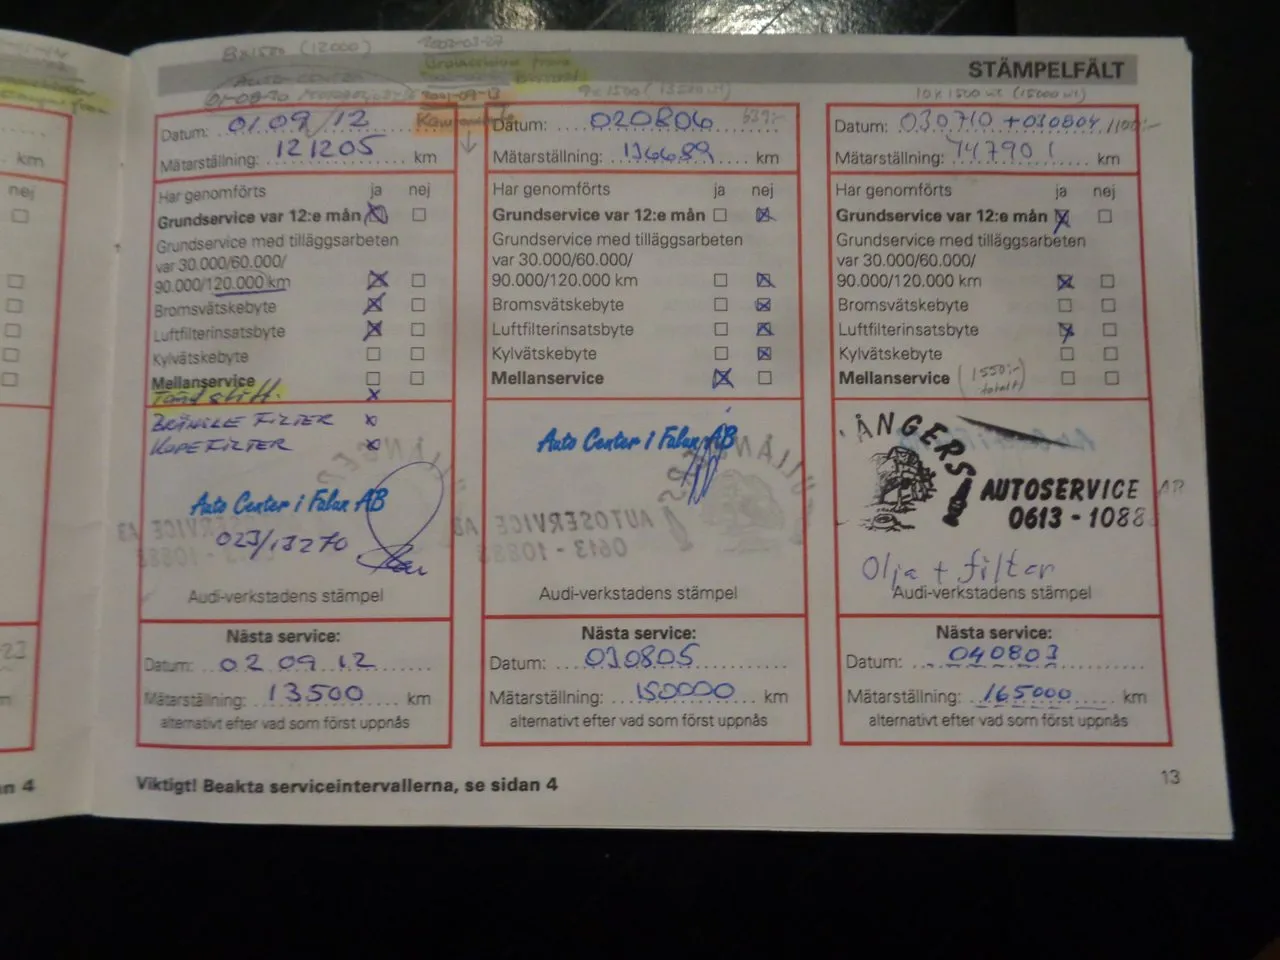 STÄMPELFÄLT
8x1500 (12000)
2002-03-27
01-09-10
2001-09-13
Datum: 01.09/12
Mätarställning: 121205 km
Har genomförts ja nej
Grundservice var 12:e mån
Grundservice med tilläggsarbeten
var 30.000/60.000/
90.000/120.000 km
Bromsvätskebyte
Luftfilterinsatsbyte
Kylvätskebyte
Mellanservice
Tändstift. x
BRÄNSLE FILTER x
KUPEFILTER x
Auto Center i Falun AB
023/13270
Audi-verkstadens stämpel
Nästa service:
Datum: 02.09.12
Mätarställning: 13500 km
alternativt efter vad som först uppnås
9x1500 (13500)
Datum: 020806 639:-
Mätarställning: 136689 km
Har genomförts ja nej
Grundservice var 12:e mån
Grundservice med tilläggsarbeten
var 30.000/60.000/
90.000/120.000 km
Bromsvätskebyte
Luftfilterinsatsbyte
Kylvätskebyte
Mellanservice
Auto Center i Falun AB
Audi-verkstadens stämpel
Nästa service:
Datum: 030805
Mätarställning: 150000 km
alternativt efter vad som först uppnås
10x1500 (15000)
Datum: 030710 + 030804 1100:-
Mätarställning: 147901 km
Har genomförts ja nej
Grundservice var 12:e mån
Grundservice med tilläggsarbeten
var 30.000/60.000/
90.000/120.000 km
Bromsvätskebyte
Luftfilterinsatsbyte
Kylvätskebyte
Mellanservice (1550:- totalt)
ÅNGERS
AUTOSERVICE AB
0613 - 1088
Olja + filter
Audi-verkstadens stämpel
Nästa service:
Datum: 040803
Mätarställning: 165000 km
alternativt efter vad som först uppnås
Viktigt! Beakta serviceintervallerna, se sidan 4
13
km
nej
an 4